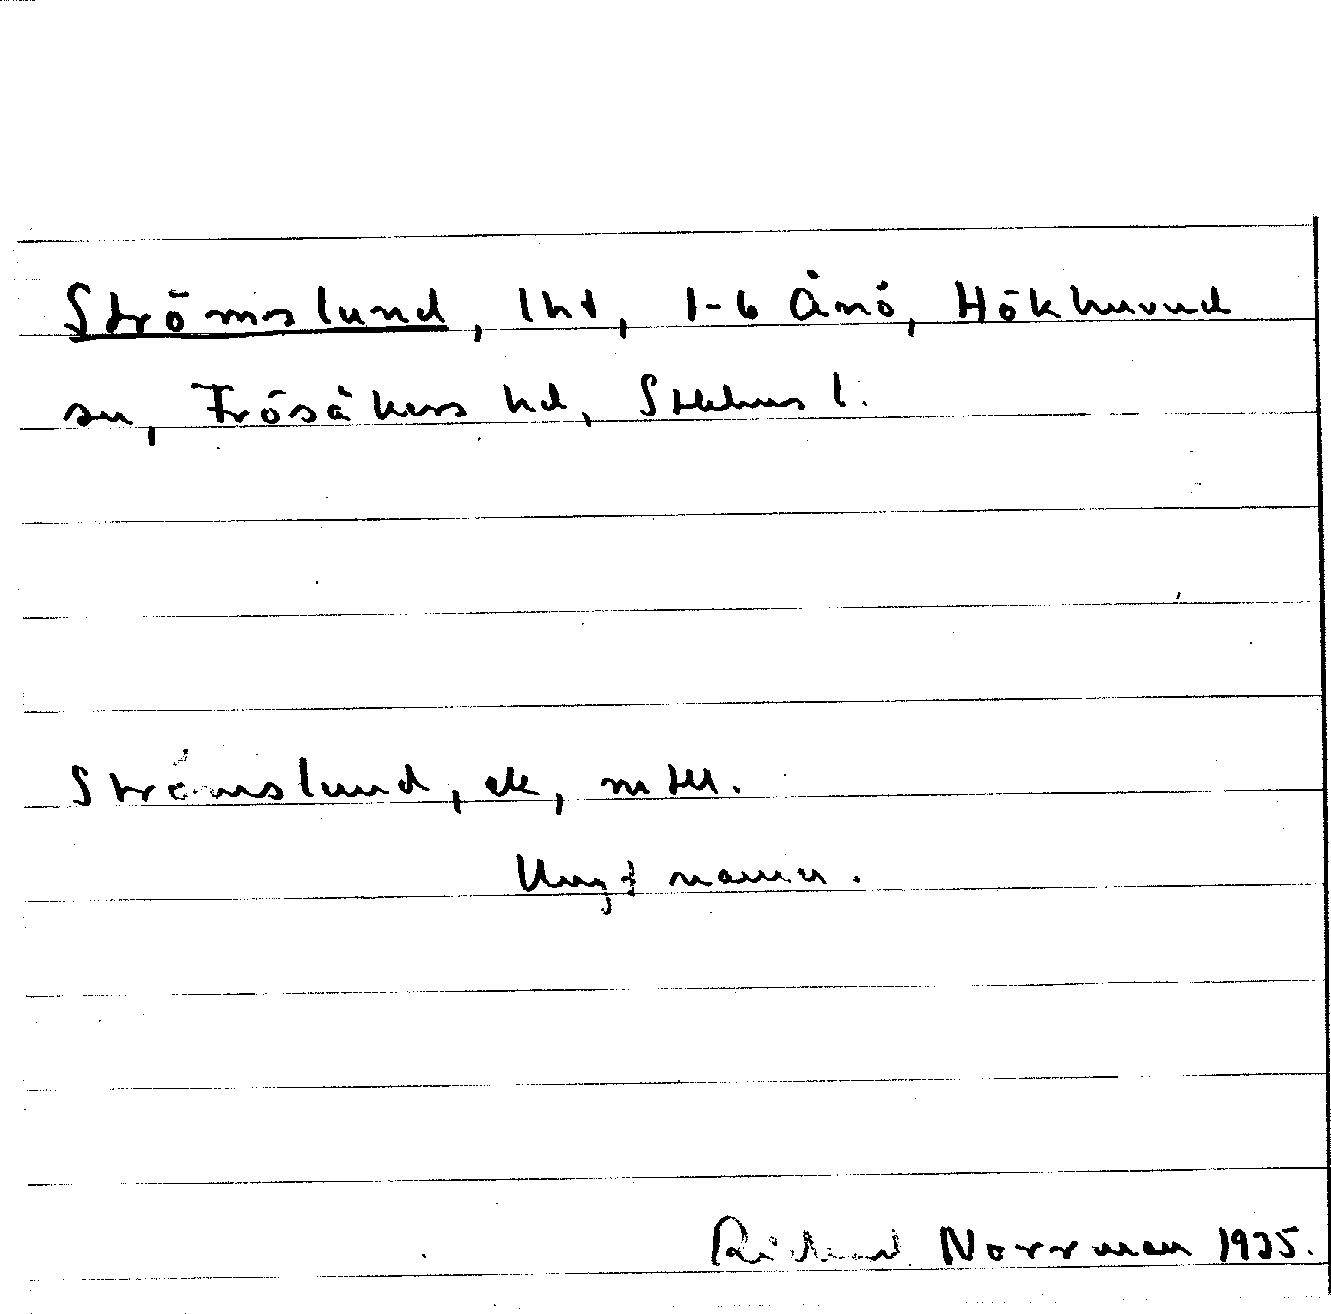 Strömslund, lht, 1-6 Ånö, Hökhuvud
sn, Frösåkers hd, Sthlms l.
Strömslund, ek, mtl.
Ungt namn.
Richard Norrman 1935.